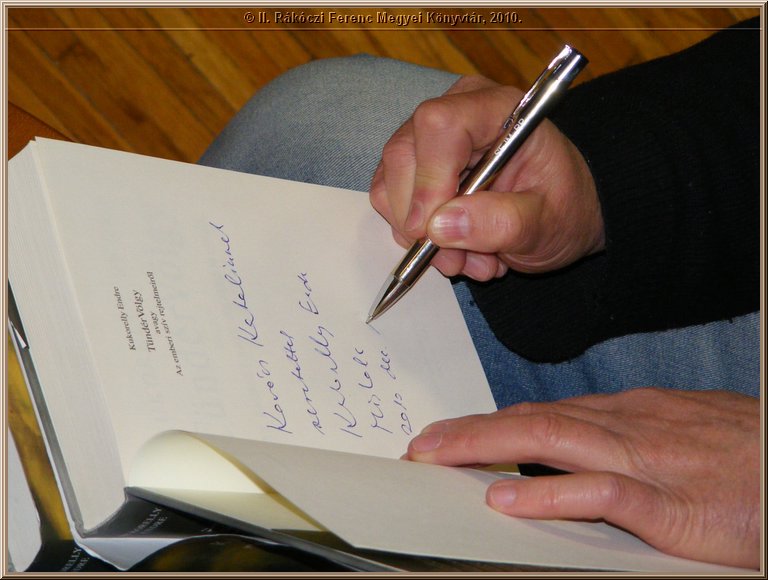 © II. Rákóczi Ferenc Megyei Könyvtár, 2010.
Kukorelly Endre
TündérVölgy
avagy
Az emberi szív rejtelmeiről
Kovács Katalinnak
szeretettel
Kukorelly Endre
Miskolc
2010 dec.